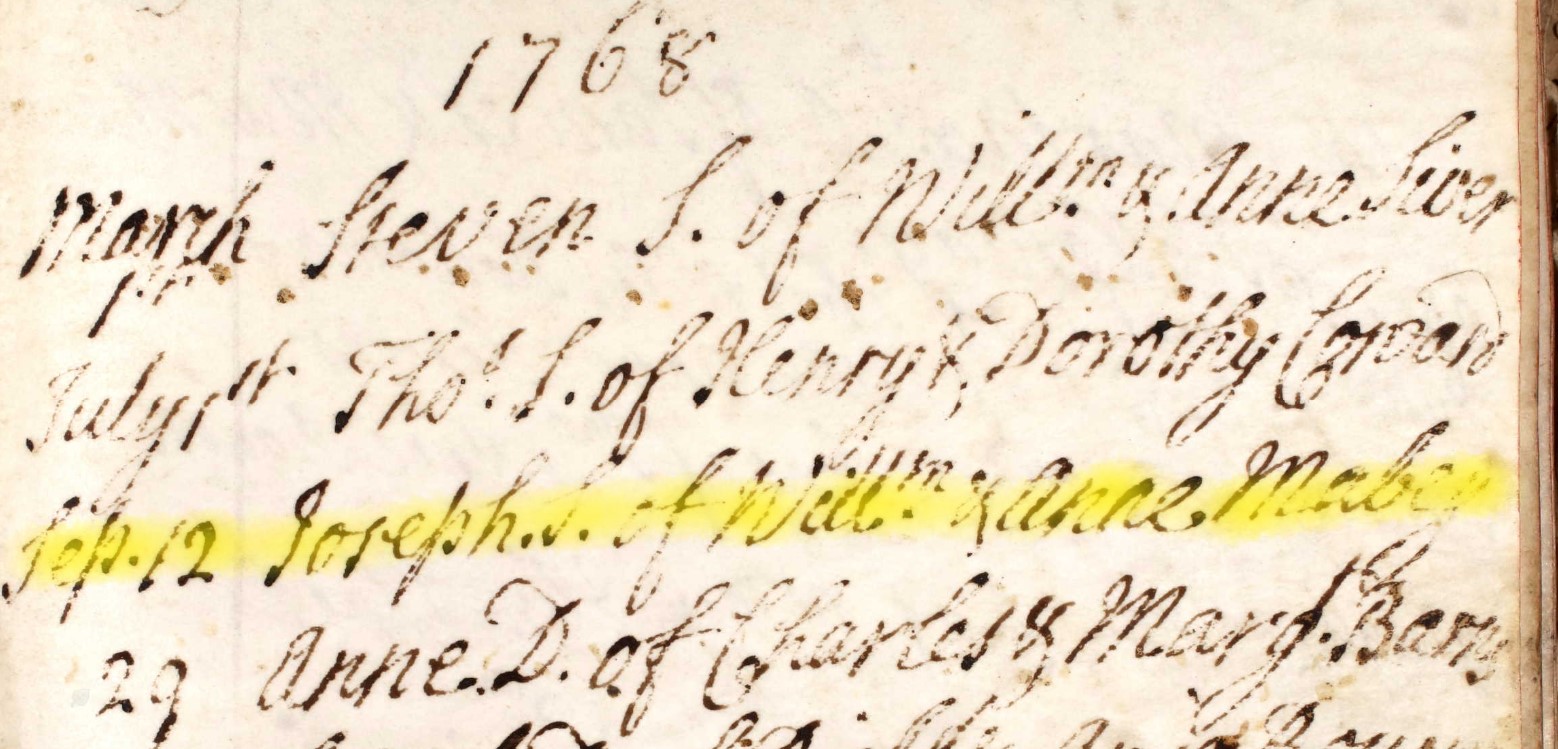 1768
March Steven S. of Willm. & Anne Siver
1st
July 1st Thos. S. of Henry & Dorothy Coward
Sep. 12 Joseph. S. of Willm. & Anne Mabey
29 Anne. D. of Charles & Margt. Barns